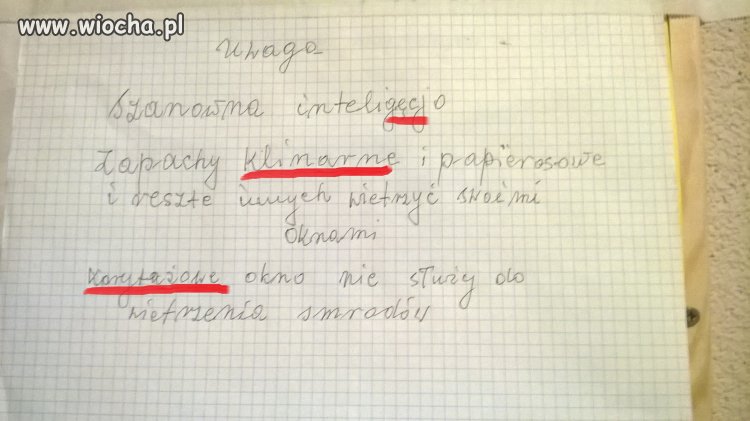 www.wiocha.pl
Uwaga
Szanowna inteligęcjo
Zapachy klinarne i papierosowe
i reszte innych wietrzyć swoimi
oknami
Korytażowe okno nie służy do
wietrzenia smrodów